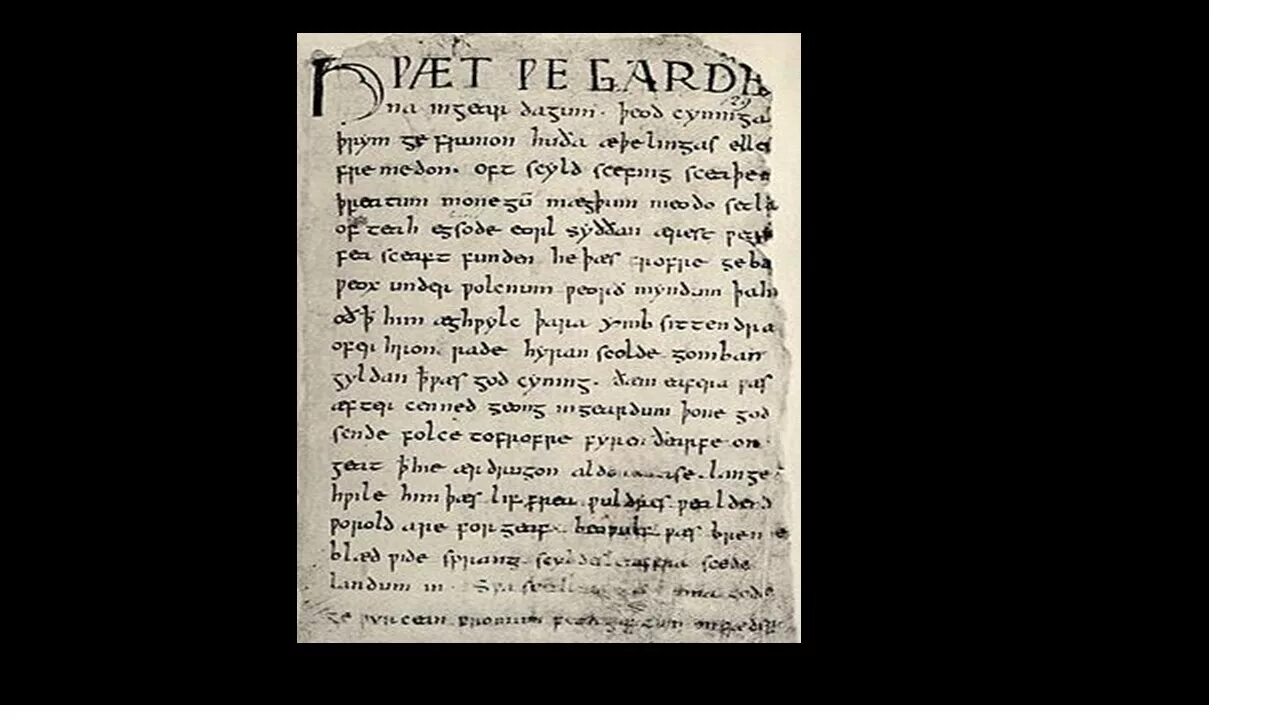 HǷÆT ǷE GARDE
na ingear dagum · þeod cyninga
þrym ge frunon huða æþelingas elle
fremedon · oft scyld scefing sceaþe
þreatum monegū mægþum meodo setla
of teah egsode eorl syððan ærest ƿear
fea sceaft funden he þæs frofre geba
ƿeox under ƿolcnum ƿeorð myndum þah
oð ꝥ him æghƿylc þara ymb sittendra
ofer hron rade hyran scolde gomban
gyldan ꝥ ƿæs god cyning · ðam eafera ƿæs
æfter cenned geong ingeardum þone god
sende folce tofrofre fyren ðearfe on
geat ꝥ hie ær drugon aldor ase · lange
hƿile him þæs lif frea ƿuldres ƿealdend
ƿorold are for geaf · beoƿulf ƿæs breme
blæd ƿide sprang scyldes eafera scede
landum in · Sƿa sceal ma gode
ge ƿyrcean fromum feoh giftum